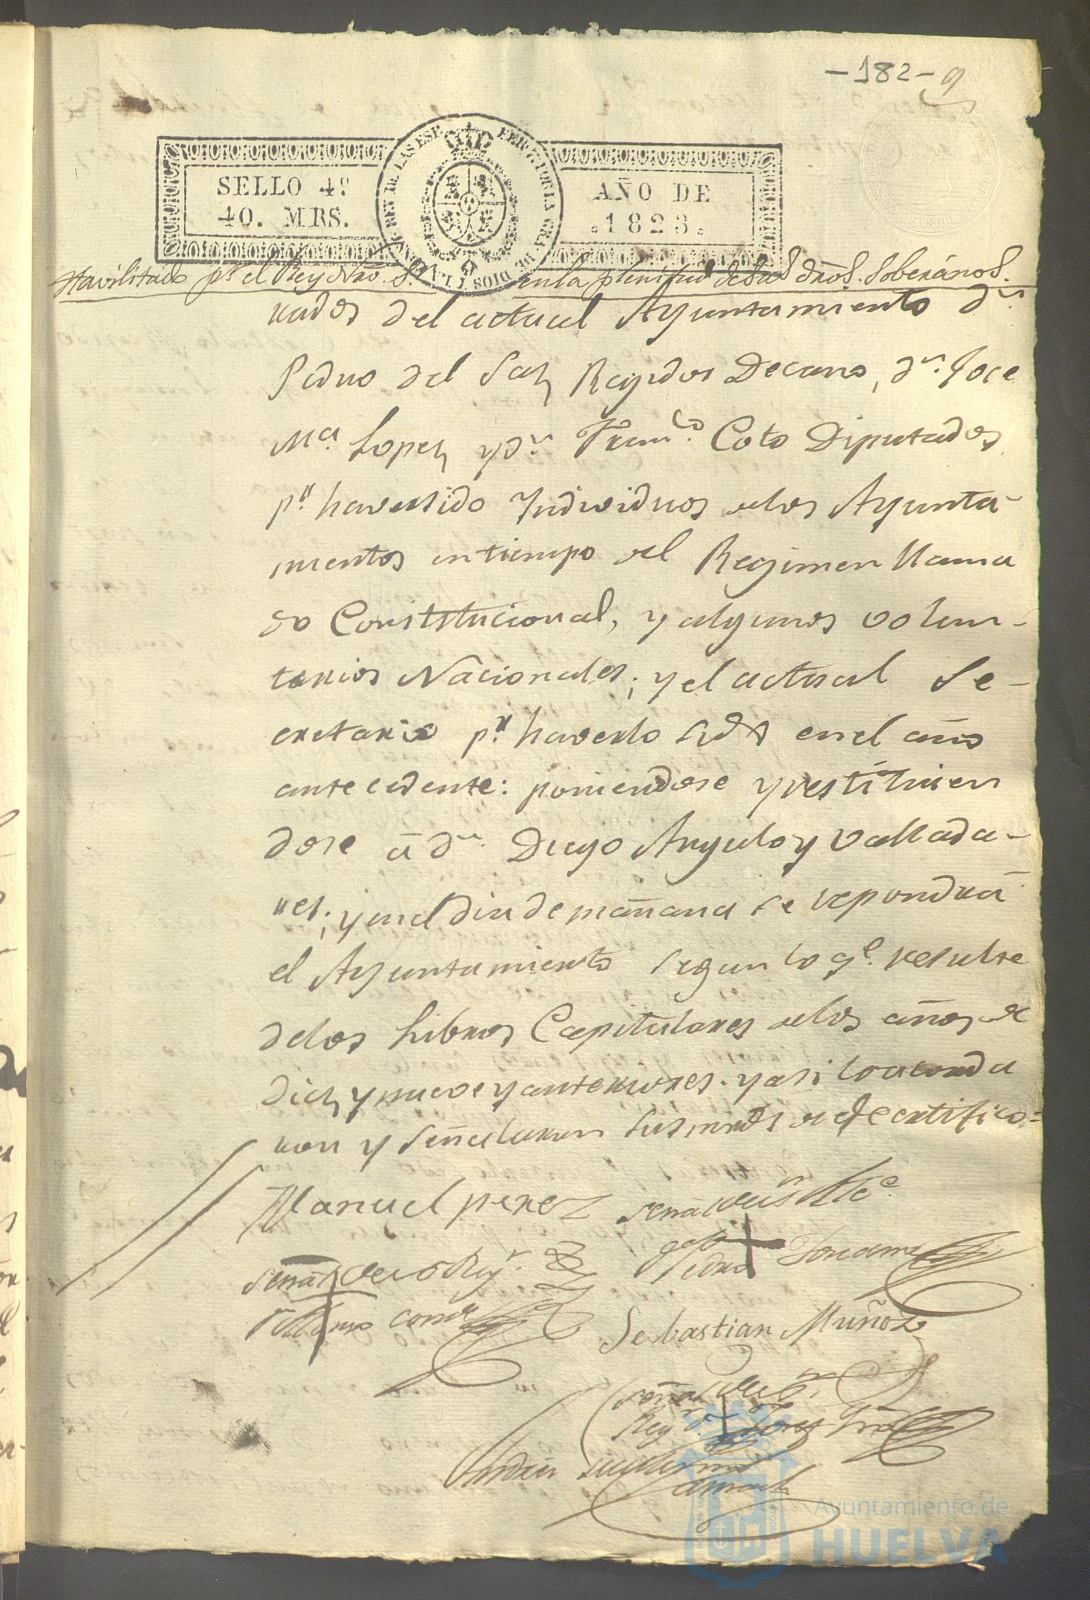 -182- 9
SELLO 4º
40. MRS.
AÑO DE
1823.
Havilitado pr el Rey Ntro. Sr. en la plenitud de sus dros. Soberanos.
nados del actual Ayuntamiento dn.
Pedro del Saz Regidor Decano, dn. Jose
Ma. Lopez, y dn. Franco. Coto Diputados
pr haver sido Individuos de los Ayunta-
mientos en tiempo del Regimen llama
do Constitucional, y algunos volun-
tarios Nacionales; y el actual Se-
cretario pr. haverlo sido en el año
antecedente: poniendose y restituien
dose á dn. Diego Angulo y Vallada-
res; y en el dia de mañana se repondrá
el Ayuntamiento segun lo qe. resulte
de los Libros Capitulares de los años de
diez y nueve y anteriores. y asi lo acorda
ron y señalaron sus mrds de qe certifico=
Manuel perez señal de us Alce.
señal de lo Regr.
Pedro
Alonso
Sebastian Muñoz
señal de
Regor
Ayuntamiento de
HUELVA